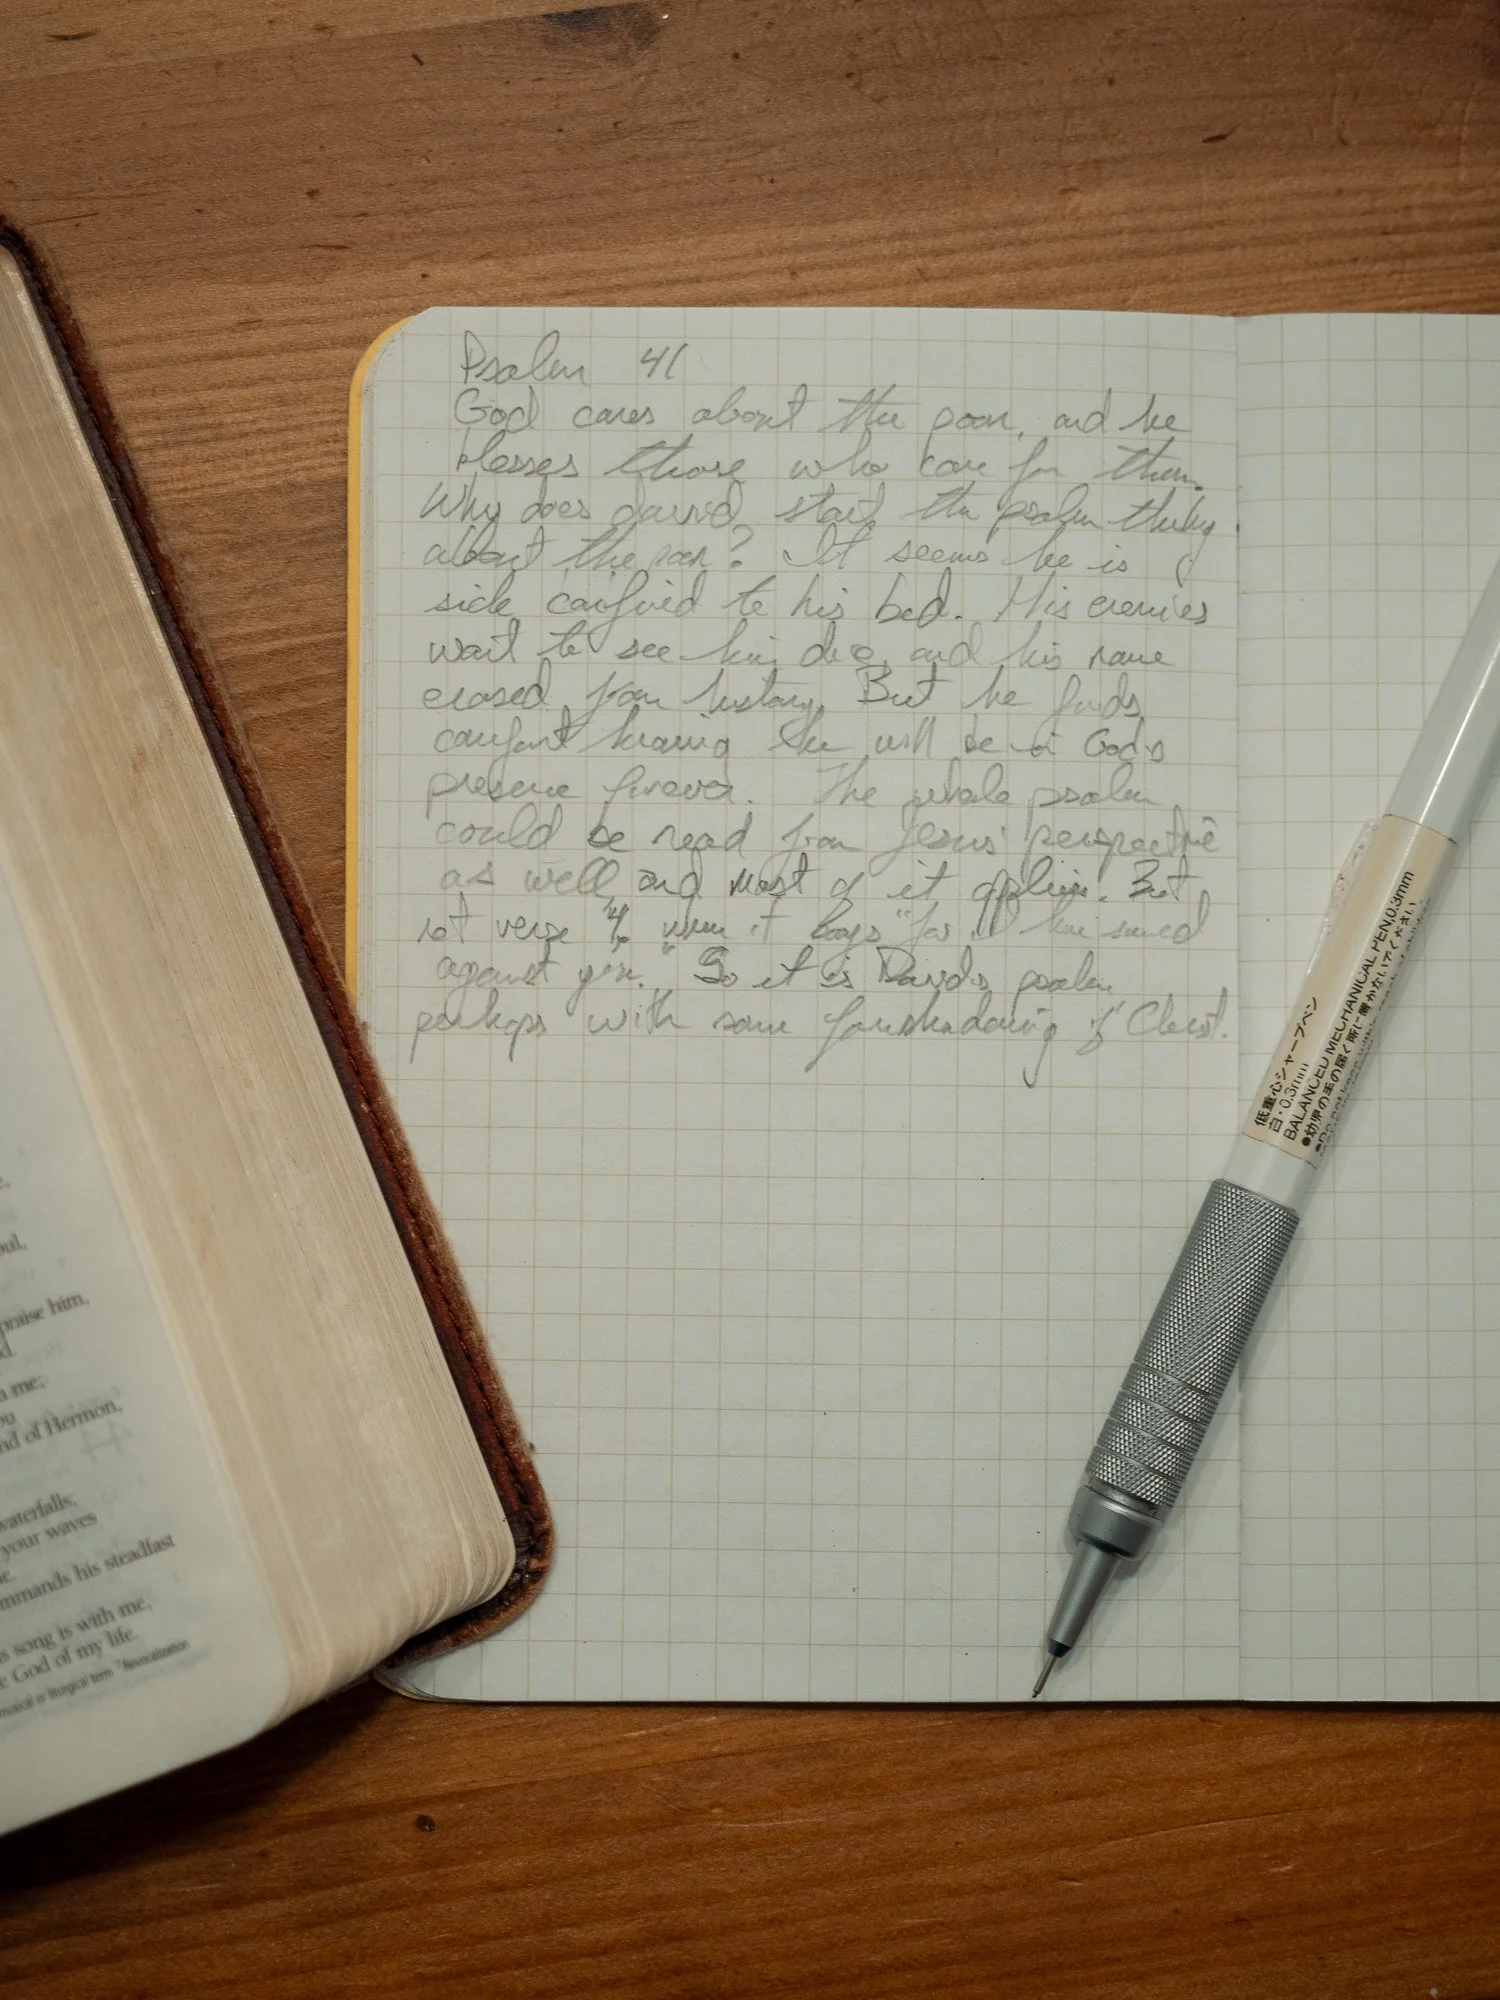 Psalm 41
God cares about the poor, and he
blesses those who care for them.
Why does david start the psalm thinking
about the poor? It seems he is
sick confined to his bed. His enemies
wait to see him die and his name
erased from history. But he finds
comfort knowing he will be in God's
presence forever. The whole psalm
could be read from Jesus' perspective
as well, and most of it applies. But
not verse 4, when it says "for I have sinned
against you." So it is David's psalm
perhaps with some foreshadowing of Christ.
oul,
praise him,
d.
n me;
ou
nd of Hermon,
waterfalls;
your waves
e.
mmands his steadfast
s song is with me,
e God of my life.
musical or liturgical term ⁷Revocalization
低重心シャープペン
白・0.3mm
BALANCED MECHANICAL PEN,0.3mm
●幼児の手の届く所に置かないでください